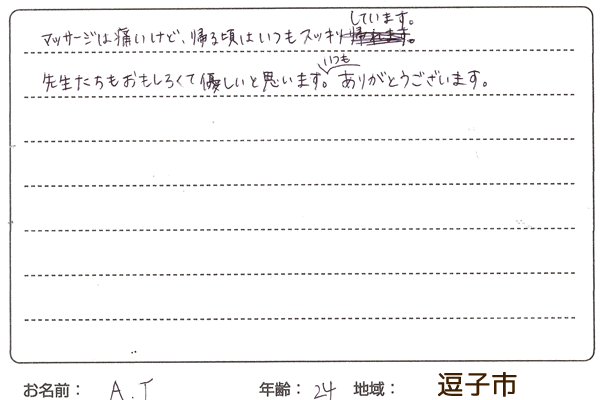 マッサージは痛いけど、帰る頃はいつもスッキリしています。
先生たちもおもしろくて優しいと思います。いつもありがとうございます。
お名前： A.T 年齢： 24 地域： 逗子市